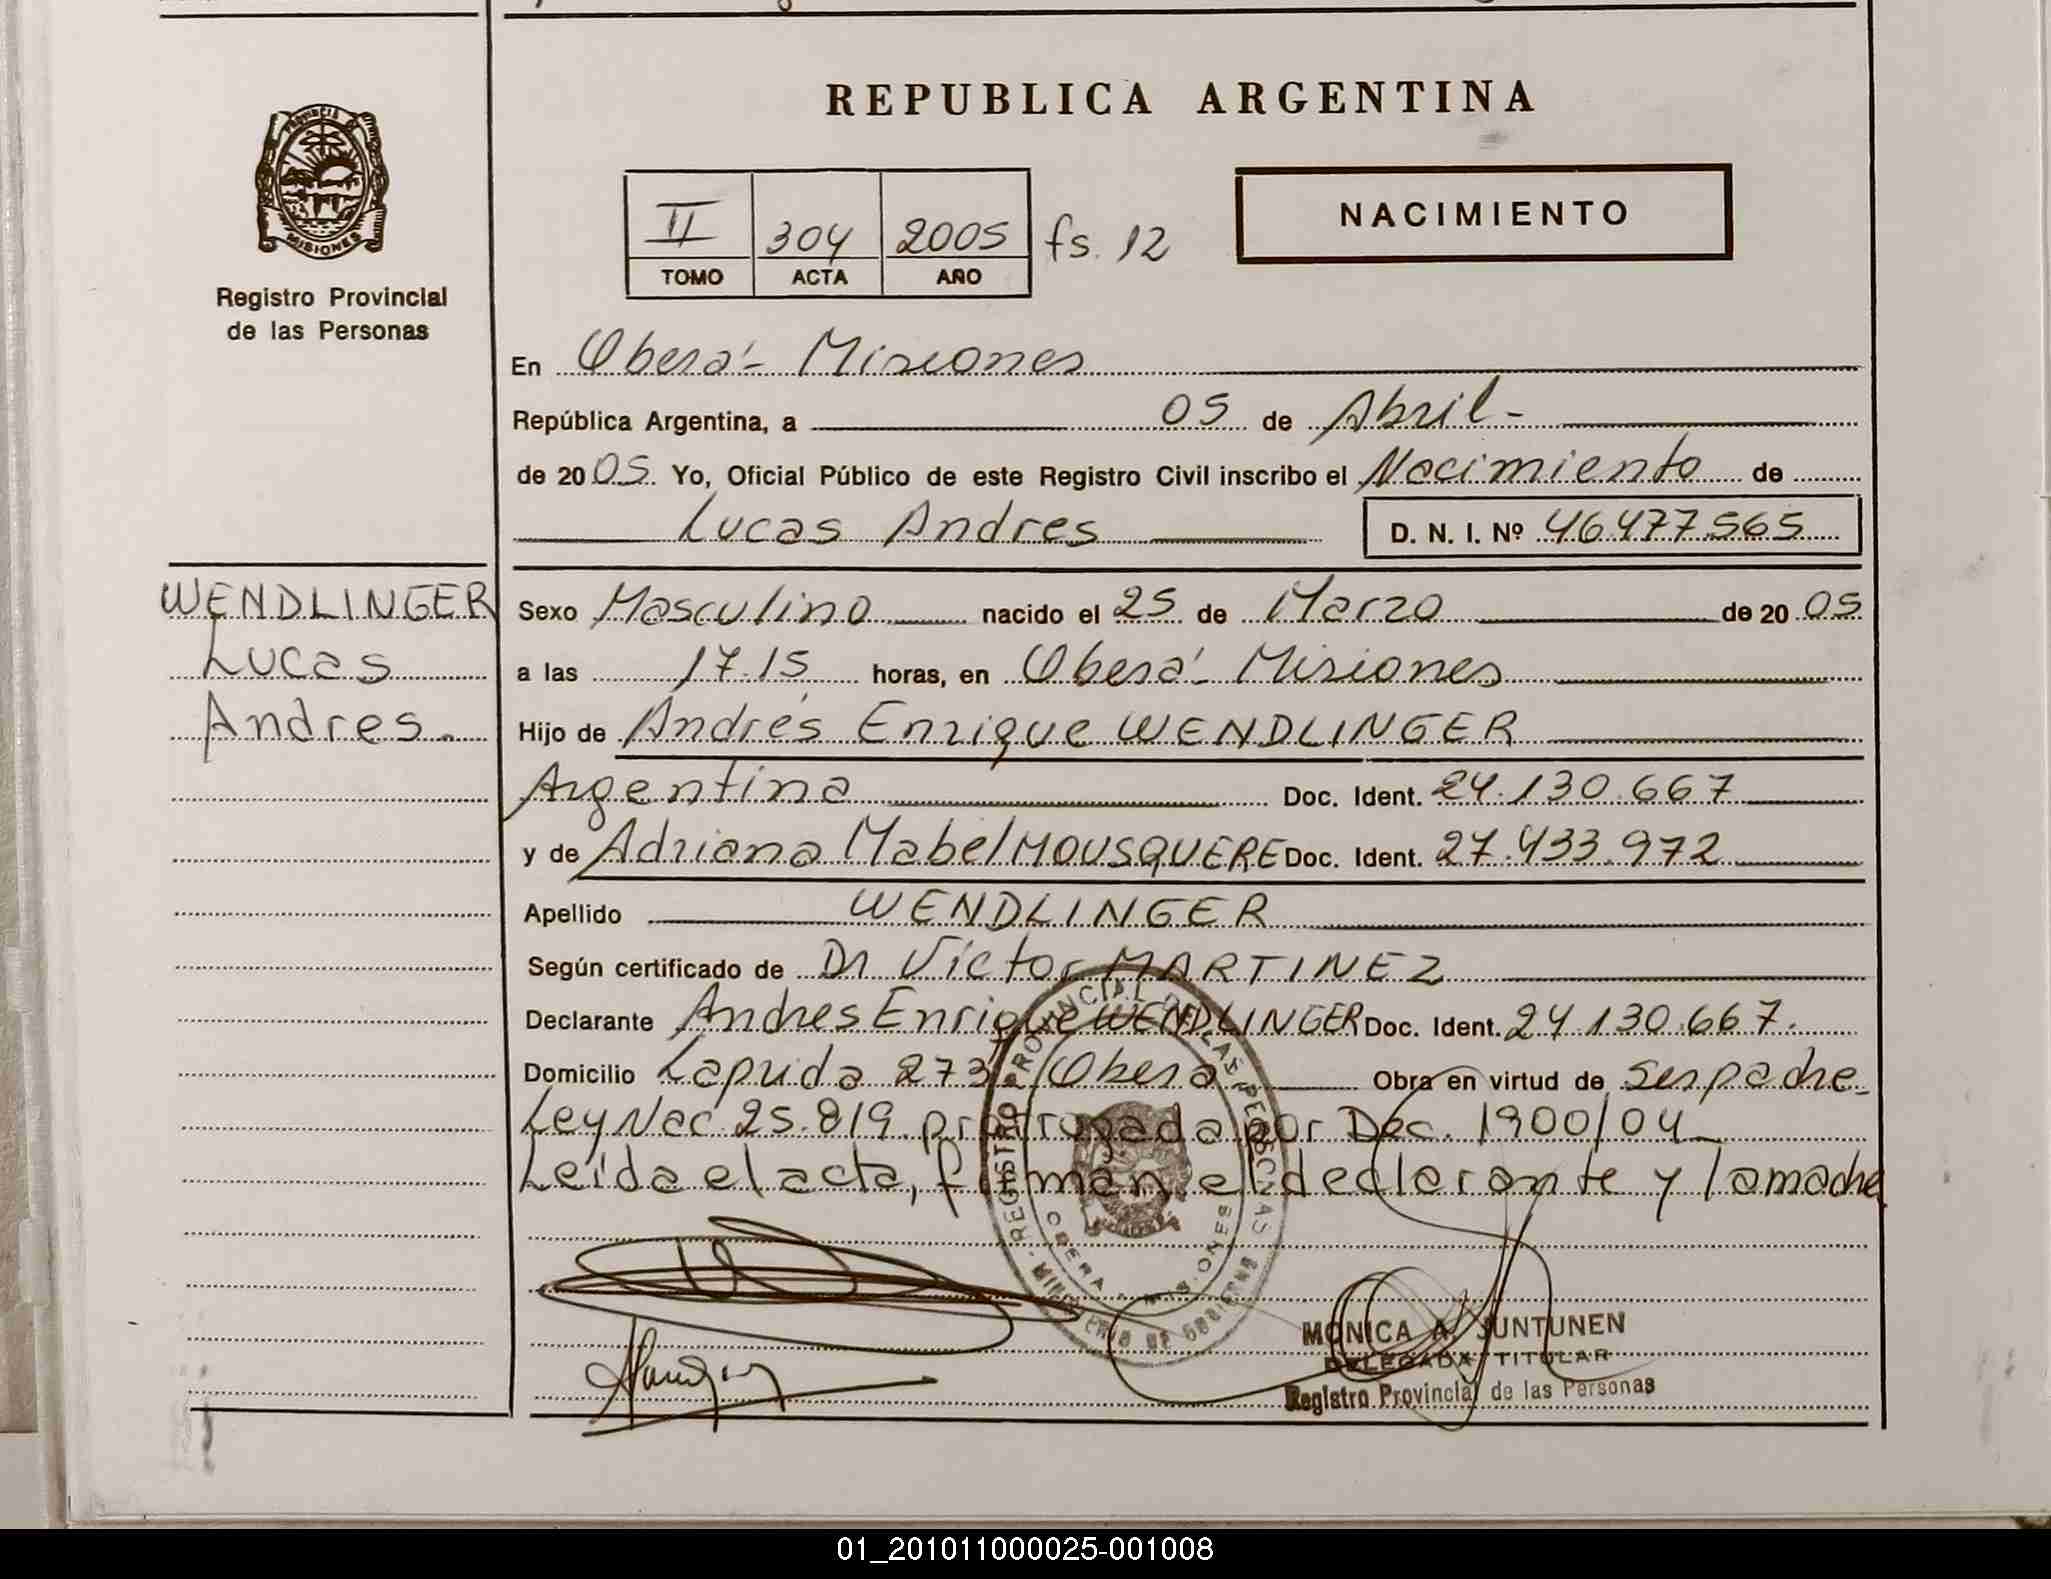 REPUBLICA ARGENTINA
PROVINCIA DE
MISIONES
Registro Provincial
de las Personas
NACIMIENTO
II 304 2005 fs. 12
TOMO ACTA AÑO
En Oberá - Misiones
República Argentina, a 05 de Abril -
de 2005 Yo, Oficial Público de este Registro Civil inscribo el Nacimiento de
Lucas Andres D. N. I. Nº 46.477.565
WENDLINGER
Lucas
Andres.
Sexo Masculino nacido el 25 de Marzo de 2005
a las 17.15 horas, en Oberá - Misiones
Hijo de Andrés Enrique WENDLINGER
Argentina Doc. Ident. 24.130.667
y de Adriana Mabel MOUSQUERE Doc. Ident. 27.433.972
Apellido WENDLINGER
Según certificado de Dr Víctor MARTINEZ
Declarante Andres Enrique WENDLINGER Doc. Ident. 24.130.667.
Domicilio Laprida 273 Oberá Obra en virtud de ser padre -
Ley Nac 25.819 prorrogada por Dec. 1900/04 -
Leida el acta, firman el declarante y la madre
REGISTRO PROVINCIAL DE LAS PERSONAS
OBERA MISIONES
MINISTERIO DE GOBIERNO
MONICA A. JUNTUNEN
DELEGADA TITULAR
Registro Provincial de las Personas
01_201011000025-001008